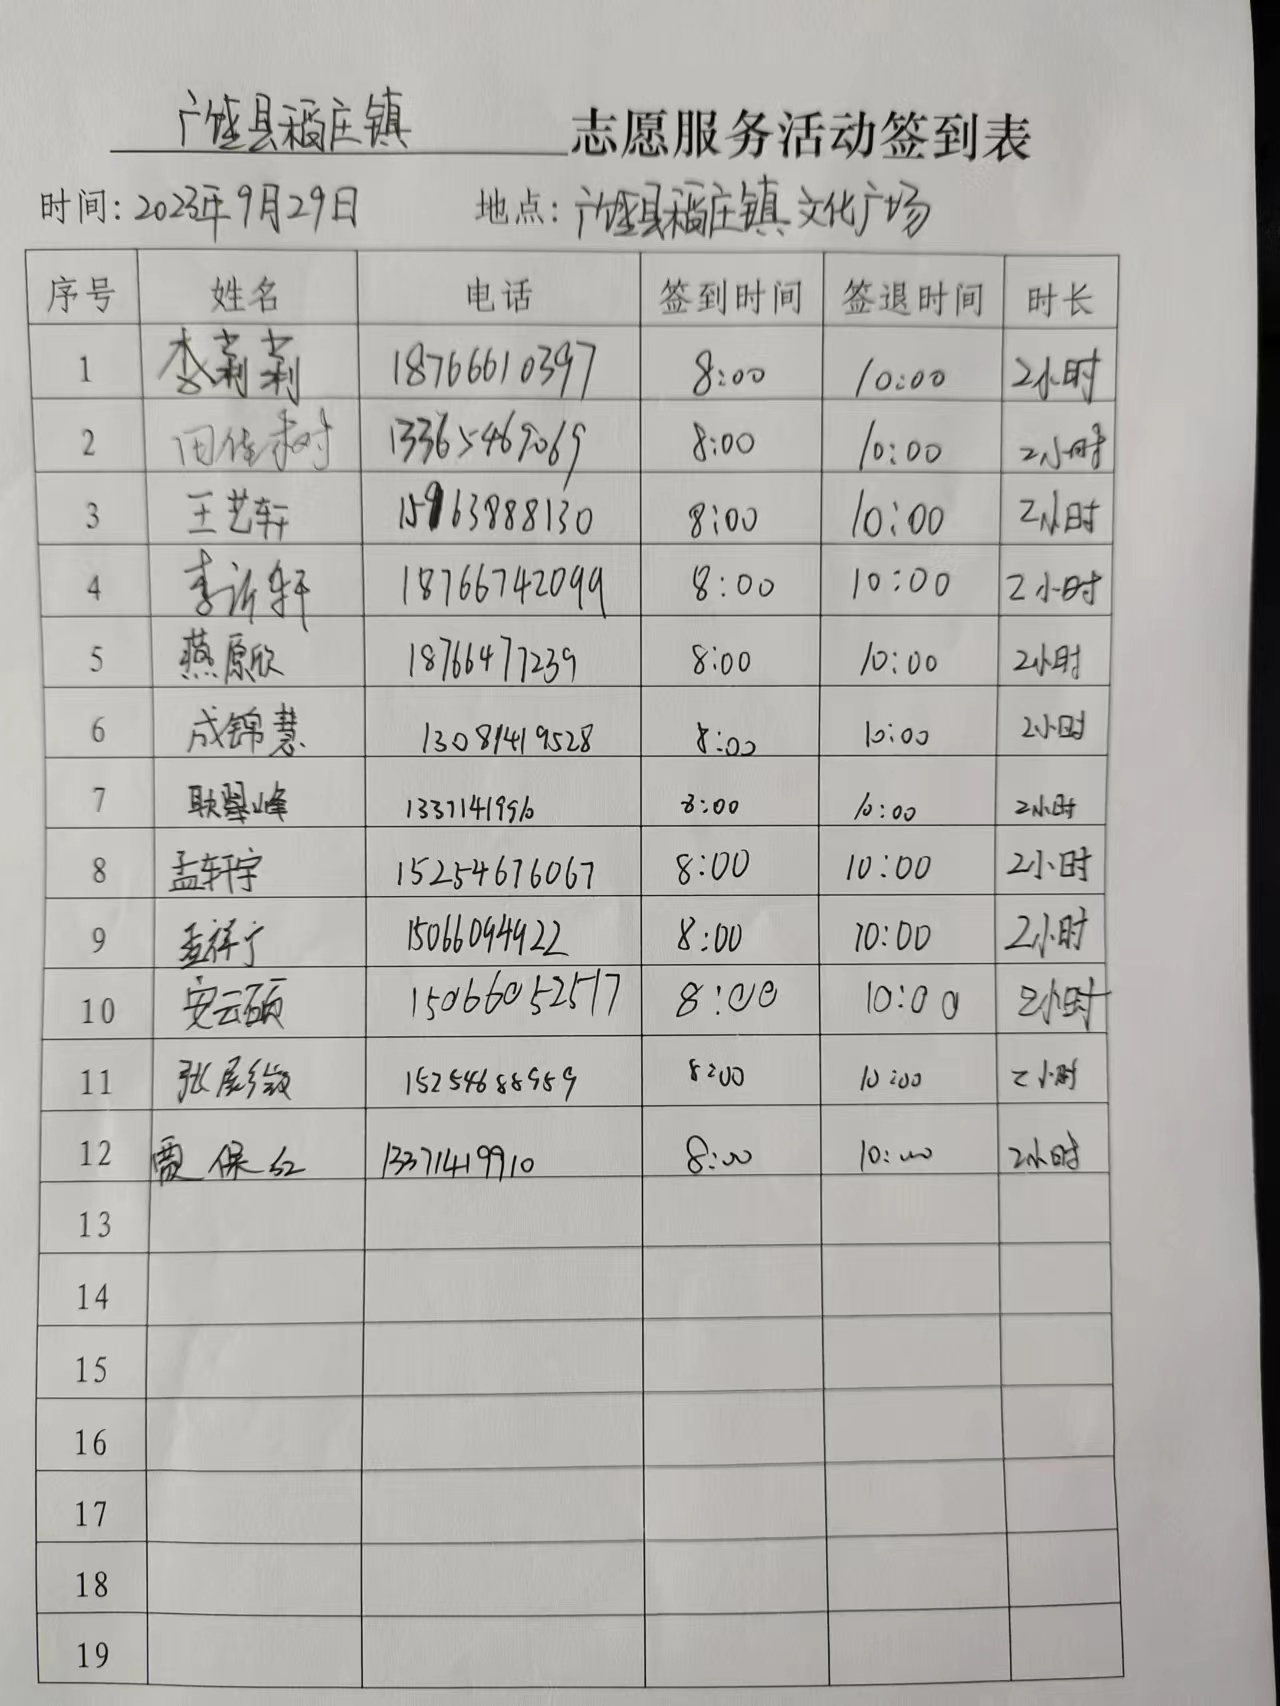 广饶县稻庄镇 志愿服务活动签到表
时间：2023年9月29日 地点：广饶县稻庄镇文化广场
序号 姓名 电话 签到时间 签退时间 时长
1 李莉莉 18766610397 8:00 10:00 2小时
2 田佳 13365469069 8:00 10:00 2小时
3 王艺轩 15963888130 8:00 10:00 2小时
4 李沂轩 18766742099 8:00 10:00 2小时
5 燕原欣 18766477239 8:00 10:00 2小时
6 成锦慧 13081419528 8:00 10:00 2小时
7 耿翠峰 1337141996 8:00 10:00 2小时
8 孟轩宇 15254676067 8:00 10:00 2小时
9 孟祥宁 15066094922 8:00 10:00 2小时
10 安云硕 15066052517 8:00 10:00 2小时
11 张 15254688989 8:00 10:00 2小时
12 贾保红 13371419910 8:00 10:00 2小时
13
14
15
16
17
18
19